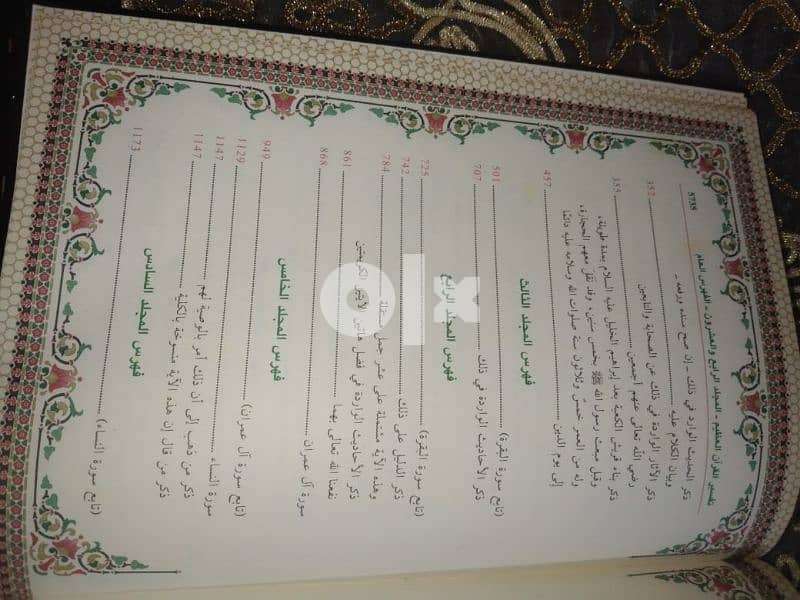 تفسير القرآن العظيم - المجلد الرابع والعشرون - الفهرس العام 5735
ذكر الحديث الوارد في ذلك - إن صح سنده ورفعه -
وبيان الكلام عليه 352
ذكر الآثار الواردة في ذلك عن الصحابة والتابعين
رضي الله تعالى عنهم أجمعين 355
ذكر بناء قريش الكعبة بعد إبراهيم الخليل عليه السلام بمدة طويلة،
وقبل مبعث رسول الله ﷺ بخمس سنين، وقد نقل معهم الحجارة،
وله من العمر خمسٌ وثلاثون سنة صلوات الله وسلامه عليه دائمًا
إلى يوم الدين 457
فهرس المجلد الثالث
(تابع سورة البقرة) 501
ذكر الأحاديث الواردة في ذلك 707
فهرس المجلد الرابع
(تابع سورة البقرة) 725
ذكر الدليل على ذلك 742
وهذه الآية مشتملة على عشر جمل مستقلة 784
ذكر الأحاديث الواردة في فضل هاتين الآيتين الكريمتين
نفعنا الله تعالى بهما 861
سورة آل عمران 868
فهرس المجلد الخامس
(تابع سورة آل عمران) 949
سورة النساء 1129
ذكر من ذهب إلى أن ذلك أمر بالوصية لهم 1147
ذكر من قال إن هذه الآية منسوخة بالكلية 1147
فهرس المجلد السادس
(تابع سورة النساء) 1173
olx